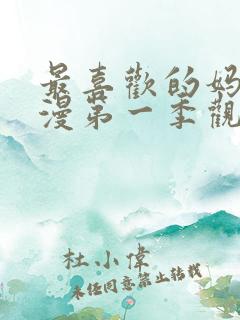 最喜歡的媽
漫第一季觀
杜小偉
未任同意禁止轉載